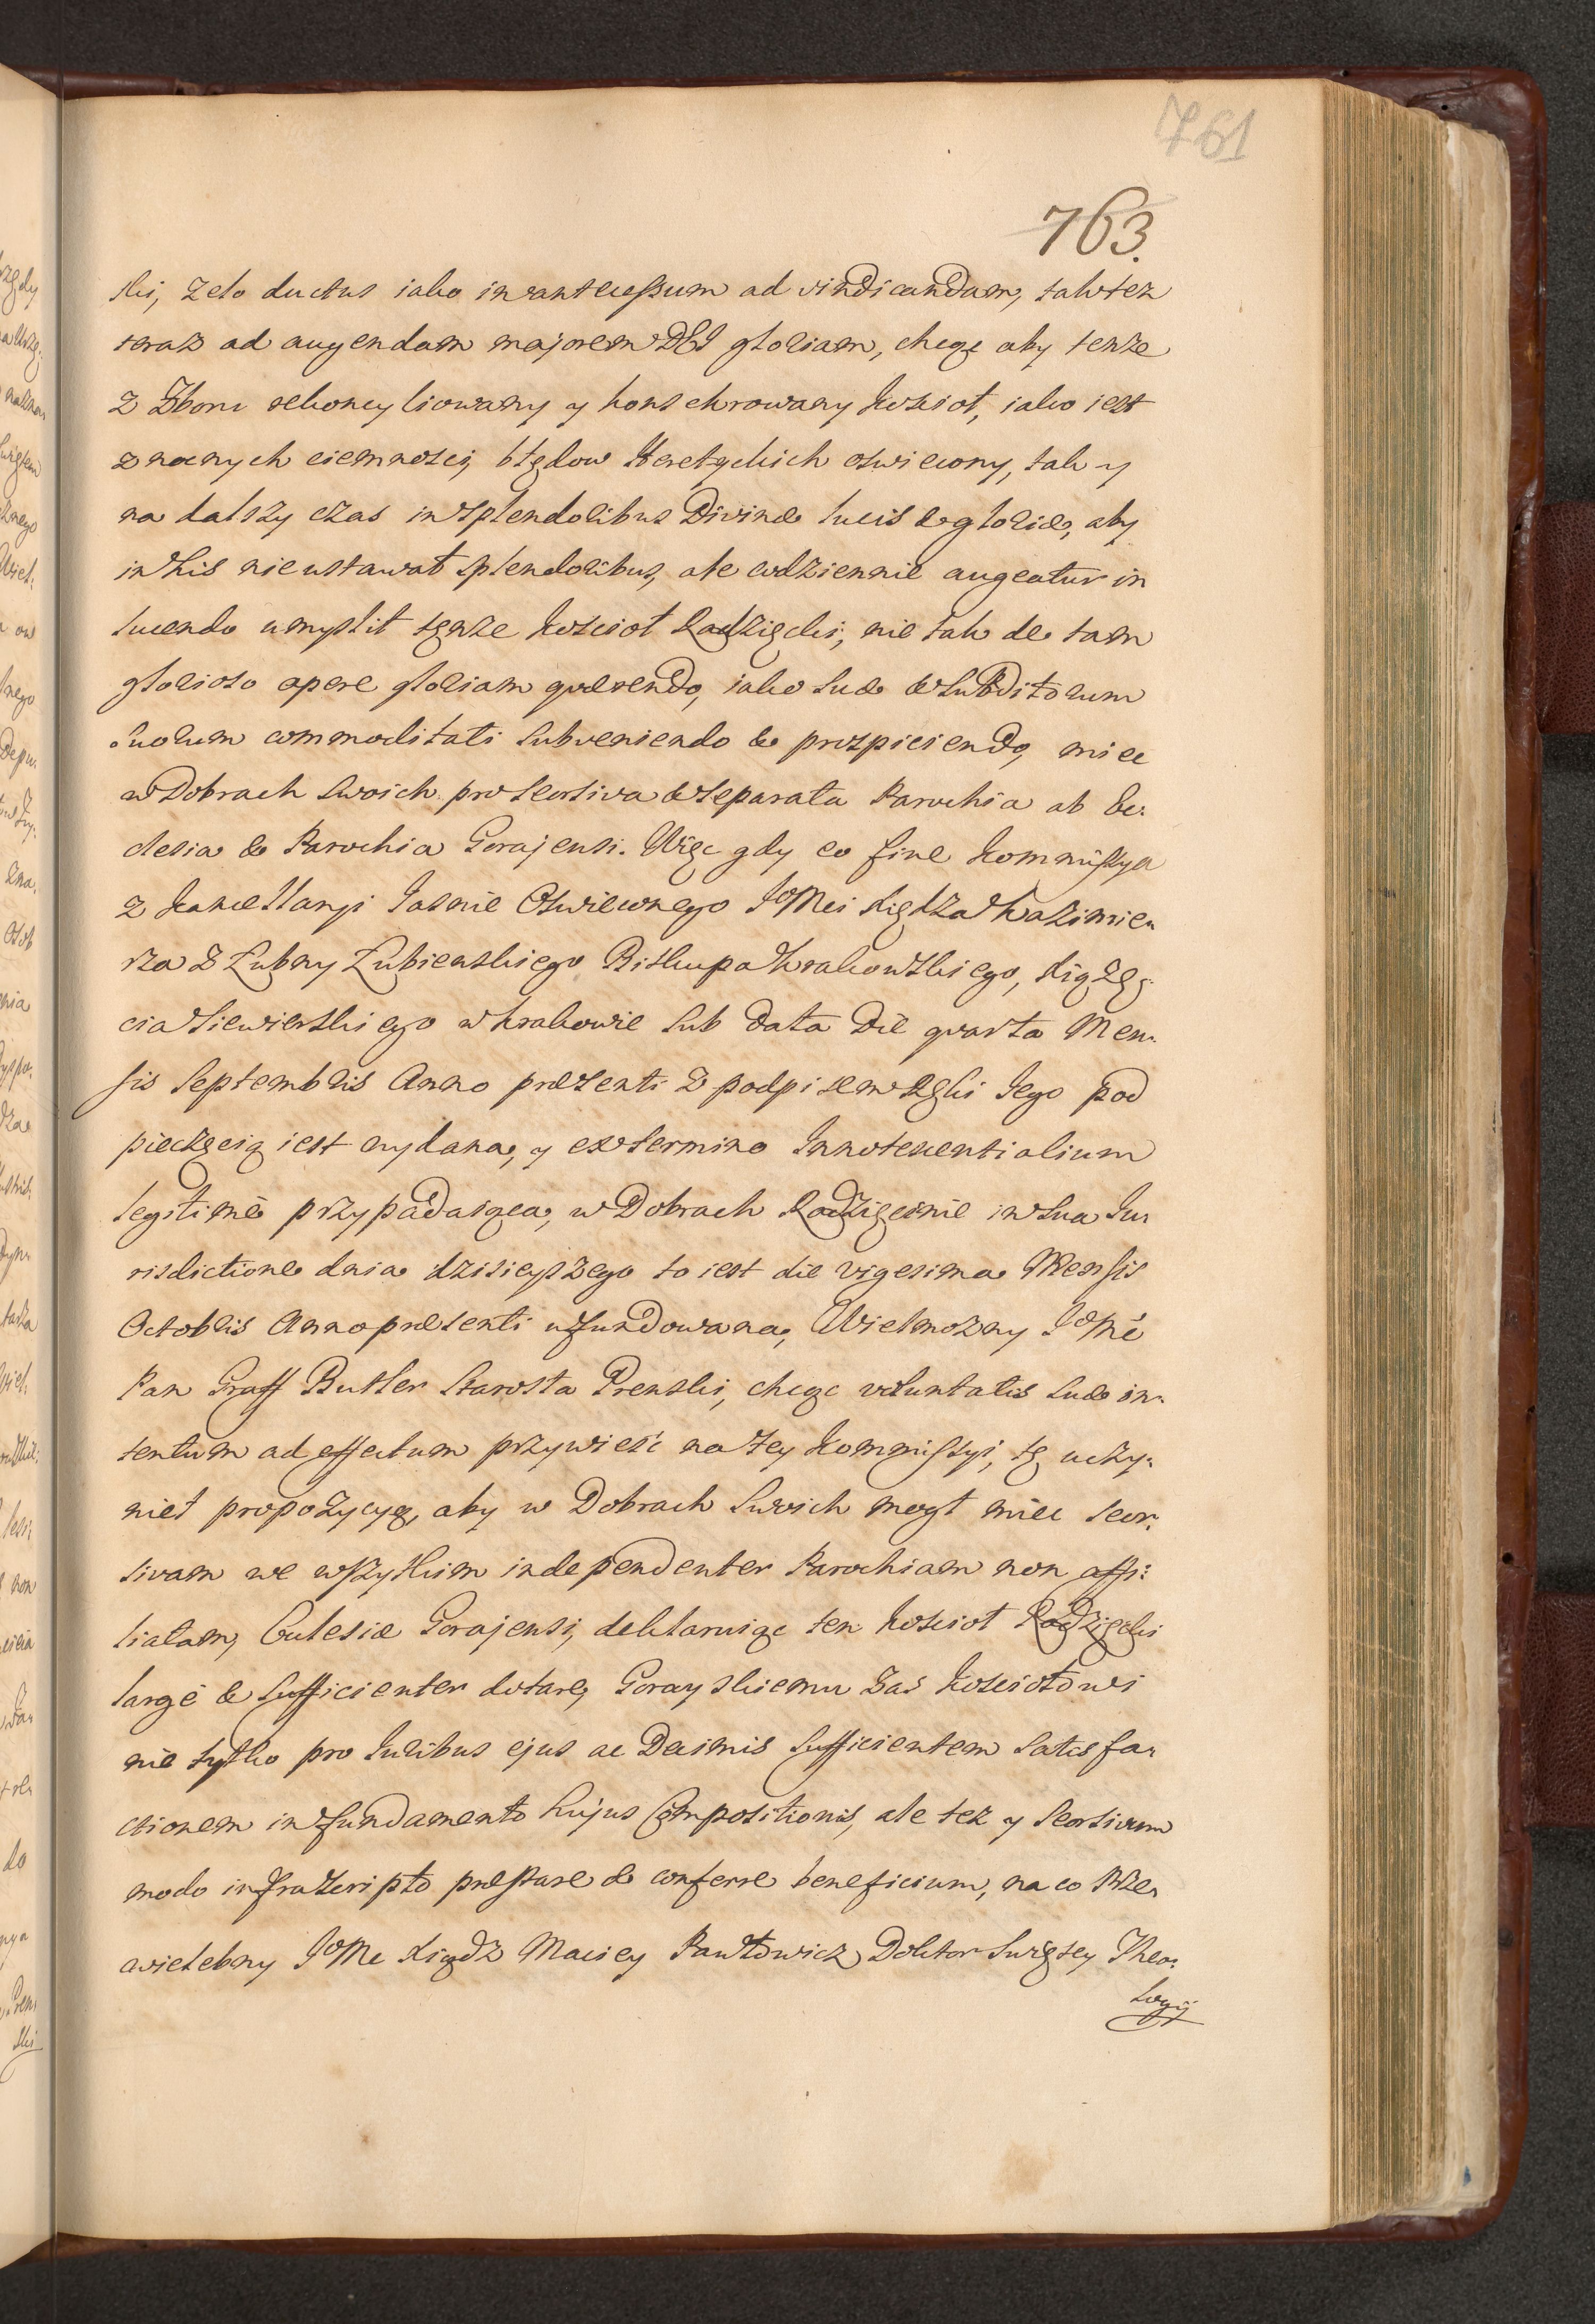 761
763.
ski, zelo ductus iako in antecessum ad vindicandam, tak tez
teraz ad augendam majorem DEI gloriam, chcąc aby tenże
z Zboru rekoncyliowany y konsekrowany Koscioł, iako iest
z nocnych ciemności, błędow Heretyckich oswiecony, tak y
na dalszy czas in splendoribus Divinæ lucis & gloriæ, aby
in his nieustawał splendoribus, ale codziennie augeatur in
lucendo umyslił tęnże Koscioł Radzięcki, nie tak de tam
glorioso opere gloriam quærendo, iako suæ & Subditorum
suorum commoditati subveniendo & prospiciendo, miec
w Dobrach swoich pro seorsiva & separata Parochia ab Ec-
clesia & Parochia Gorajensi. Więc gdy eo fine Kommissya
z Kancellaryi Jasnie Oswieconego JoMci Xiędza Kazimie-
rza z Łubny Łubienskiego Biskupa Krakowskiego, Xiążę-
cia Siewierskiego w Krakowie sub data Die quarta Men-
sis Septembris Anno præsenti z podpisem ręki Jego pod
pieczęcią iest wydana, y ex termino Innotescentialium
legitimè przypadaiąca, w Dobrach Radzięcinie in sua Ju-
risdictione dnia dzisieyszego to iest die vigesima Mensis
Octobris Anno præsenti ufundowana, Wielmozny JoMć
Pan Graff Butler Starosta Prenski, chcąc voluntatis suæ in-
tentum ad effectum przywieść na tey Kommissyi, tę uczy-
nieł propozycyą, aby w Dobrach swoich mogł miec seor-
sivam we wszystkim independenter Parochiam non affi-
liatam, Ecclesiæ Gorajensi, deklaruiąc ten Koscioł Radzięcki
largè & sufficienter dotare, Gorayskiemu zas Kosciołowi
nie tylko pro Juribus ejus ac Decimis sufficientem satisfa-
ctionem in fundamento hujus Compositionis, ale tez y seorsivum
modo infrascripto præstare & conferre beneficium, na co Prze-
wielebny JoMć Xiądz Maciey Pawłowicz Doktor Swiętey Theo-
logij